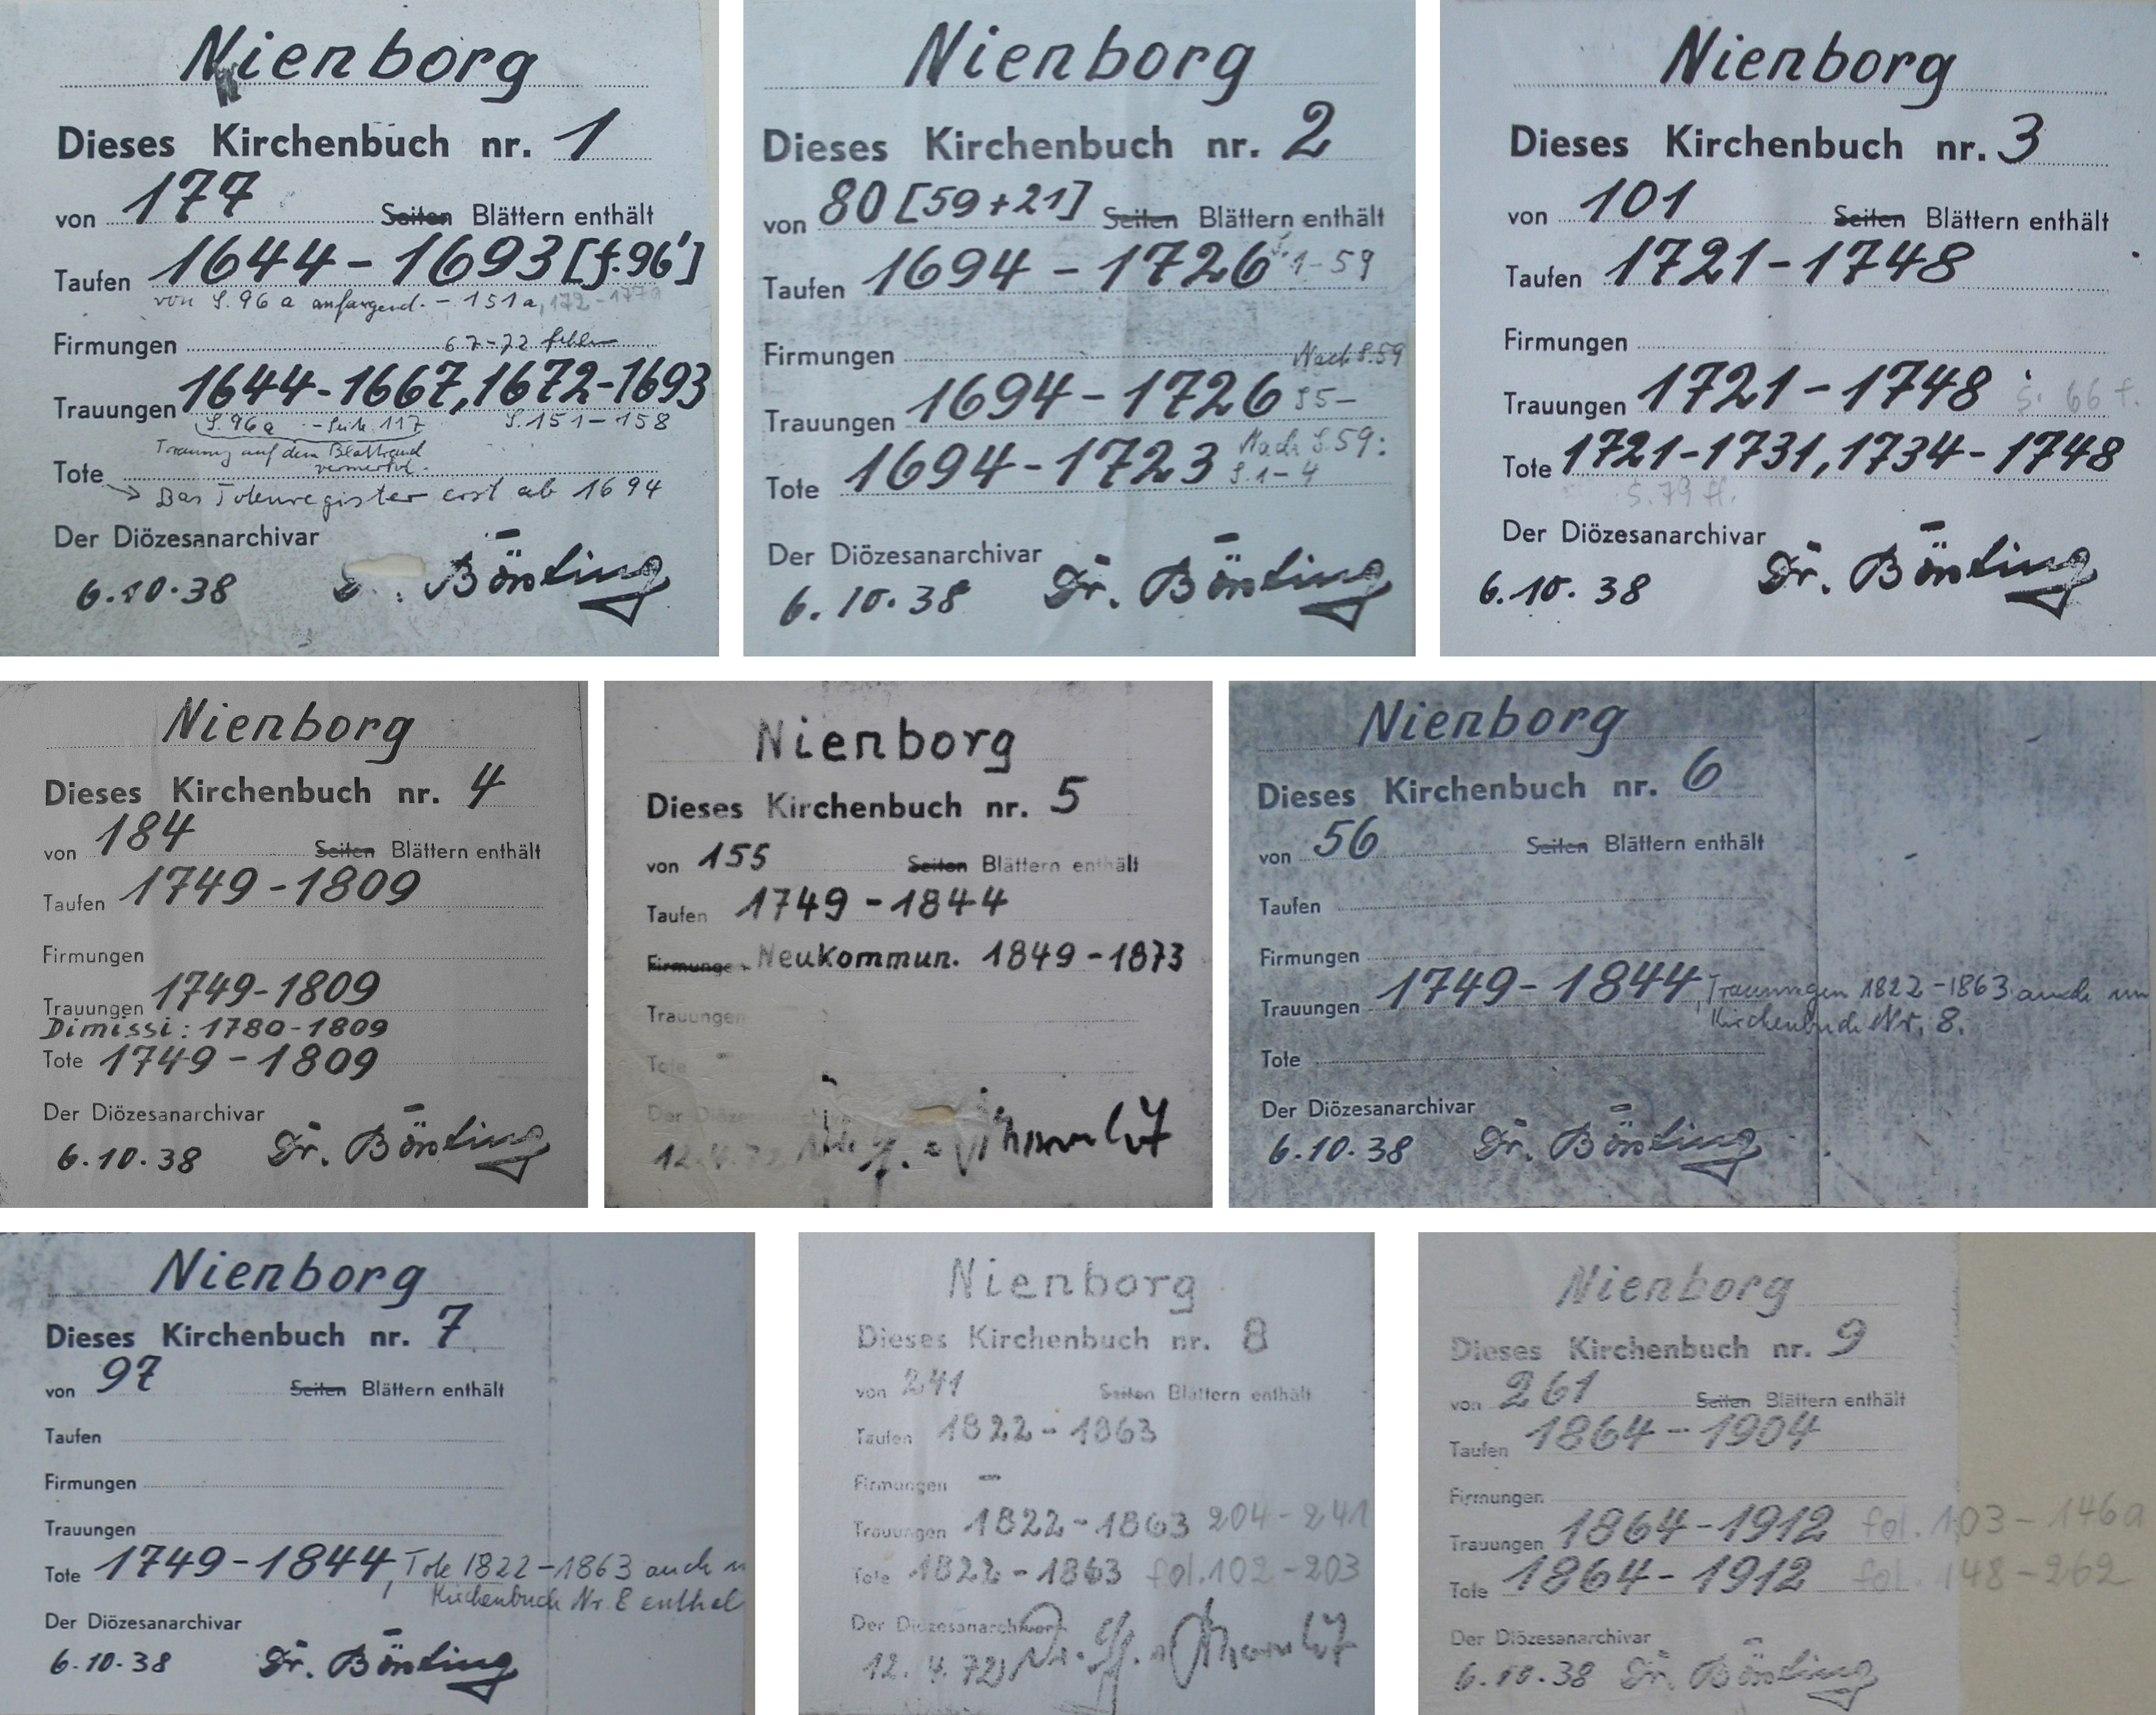 Nienborg
Dieses Kirchenbuch nr. 1
von 177 Seiten Blättern enthält
Taufen 1644-1693 [f.96']
von S. 96 a anfangend. - 151a, 172-177a
Firmungen 67-72 fehlen
Trauungen 1644-1667, 1672-1693
S. 96a - Seite 117 S. 151-158
Trauung auf dem Blattrand
vermerkt.
Tote
Das Totenregister erst ab 1694
Der Diözesanarchivar
6.10.38 Börsting
Nienborg
Dieses Kirchenbuch nr. 2
von 80 [59+21] Seiten Blättern enthält
Taufen 1694 - 1726 S. 1-59
Firmungen
Nach S. 59
Trauungen 1694-1726 S5-
Nach S. 59:
Tote 1694-1723 S. 1-4
Der Diözesanarchivar
6.10.38 Dr. Börsting
Nienborg
Dieses Kirchenbuch nr. 3
von 101 Seiten Blättern enthält
Taufen 1721-1748
Firmungen
Trauungen 1721-1748 S. 66 f.
Tote 1721-1731, 1734-1748
S. 79 ff.
Der Diözesanarchivar
6.10.38 Dr. Börsting
Nienborg
Dieses Kirchenbuch nr. 4
von 184 Seiten Blättern enthält
Taufen 1749-1809
Firmungen
Trauungen 1749-1809
Dimissi: 1780-1809
Tote 1749-1809
Der Diözesanarchivar
6.10.38 Dr. Börsting
Nienborg
Dieses Kirchenbuch nr. 5
von 155 Seiten Blättern enthält
Taufen 1749-1844
Firmungen Neukommun. 1849-1873
Trauungen
Tote
Der Diözesanarchivar
12.4.72
Nienborg
Dieses Kirchenbuch nr. 6
von 56 Seiten Blättern enthält
Taufen
Firmungen
Trauungen 1749-1844, Trauungen 1822-1863 auch im
Kirchenbuch Nr. 8.
Tote
Der Diözesanarchivar
6.10.38 Dr. Börsting
Nienborg
Dieses Kirchenbuch nr. 7
von 97 Seiten Blättern enthält
Taufen
Firmungen
Trauungen
Tote 1749-1844, Tote 1822-1863 auch
Kirchenbuch Nr. 8 enthal
Der Diözesanarchivar
6.10.38 Dr. Börsting
Nienborg
Dieses Kirchenbuch nr. 8
von 241 Seiten Blättern enthält
Taufen 1822-1863
Firmungen -
Trauungen 1822-1863 204-241
Tote 1822-1863 fol. 102-203
Der Diözesanarchivar
12.4.72 Dr.
Nienborg
Dieses Kirchenbuch nr. 9
von 261 Seiten Blättern enthält
Taufen 1864-1904
Firmungen
Trauungen 1864-1912 fol. 103-146a
Tote 1864-1912 fol. 148-262
Der Diözesanarchivar
6.10.38 Dr. Börsting